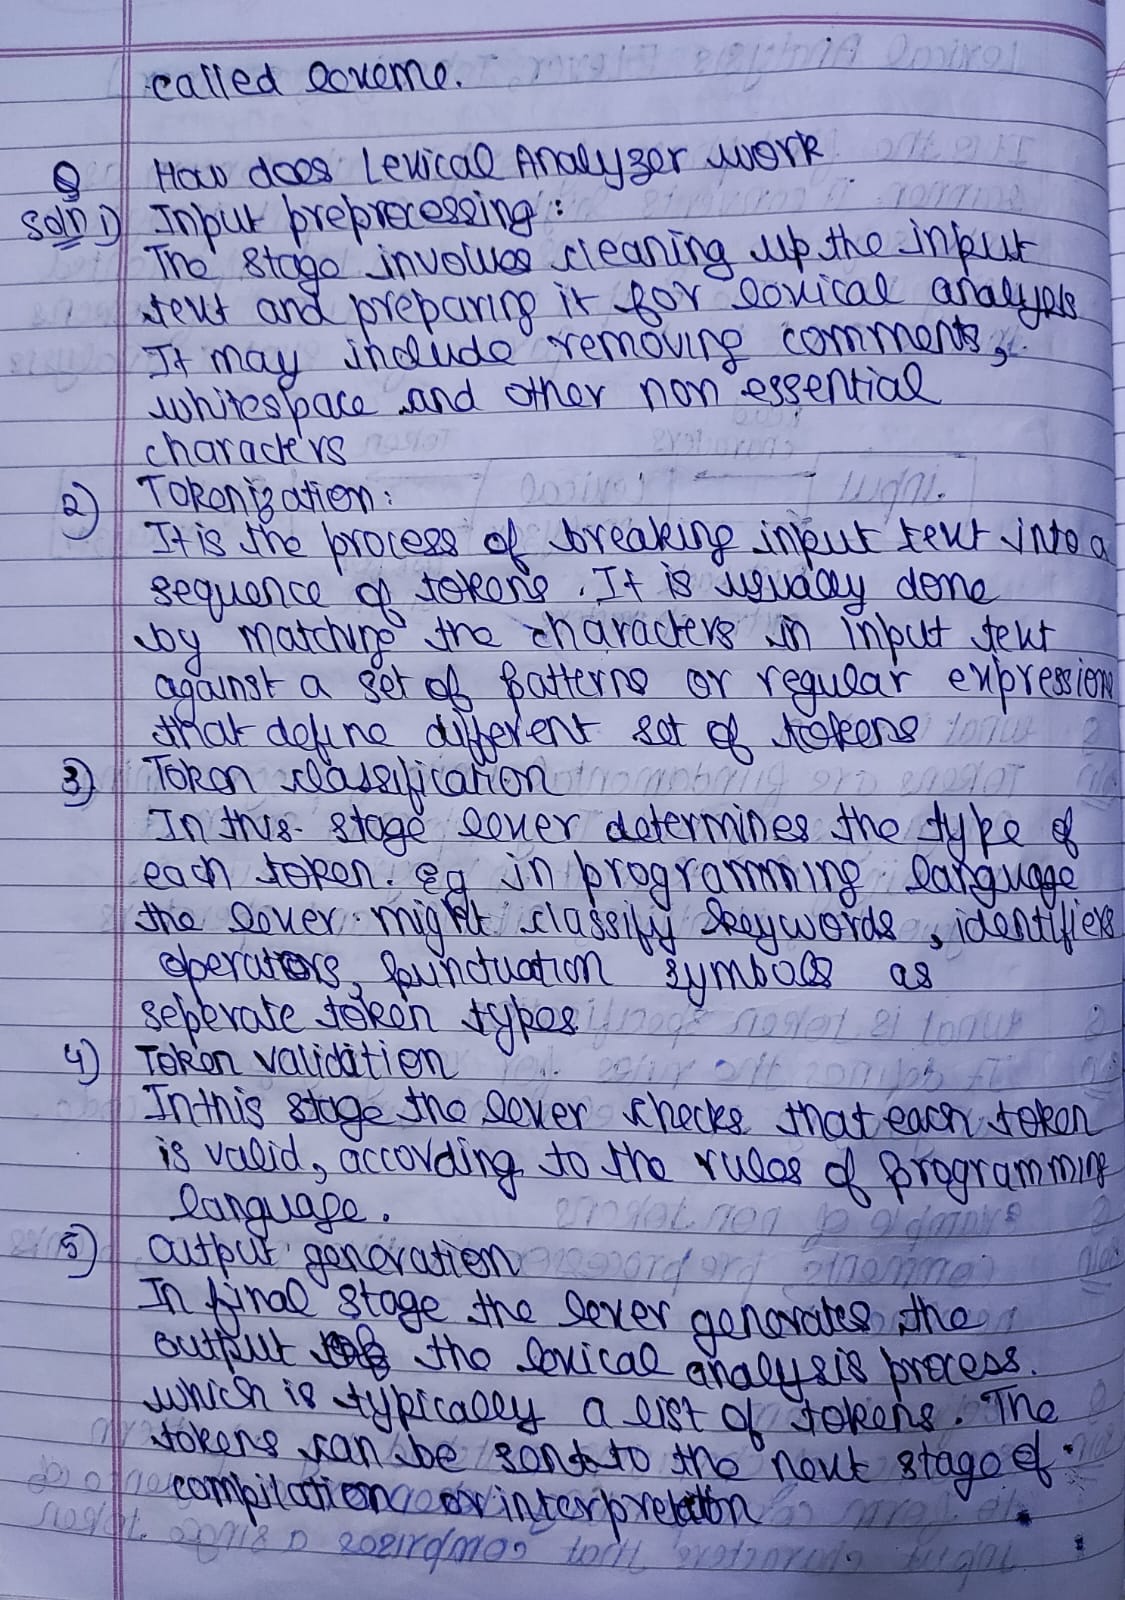 called lexeme.
Q How does Lexical Analyzer work
Soln 1) Input preprocessing:
The stage involves cleaning up the input
text and preparing it for lexical analysis
It may include removing comments,
whitespace and other non essential
characters
2) Tokenization:
It is the process of breaking input text into a
sequence of tokens. It is usually done
by matching the characters in input text
against a set of patterns or regular expressions
that define different set of tokens
3) Token classification
In this stage lexer determines the type of
each token. eg in programming language
the lexer might classify keywords, identifiers
operators, punctuation symbols as
seperate token types
4) Token validition
In this stage the lexer checks that each token
is valid, according to the rules of programming
language.
5) Output generation
In final stage the lexer generates the
output of the lexical analysis process.
which is typically a list of tokens. The
tokens can be sent to the next stage of
compilation or interpretation